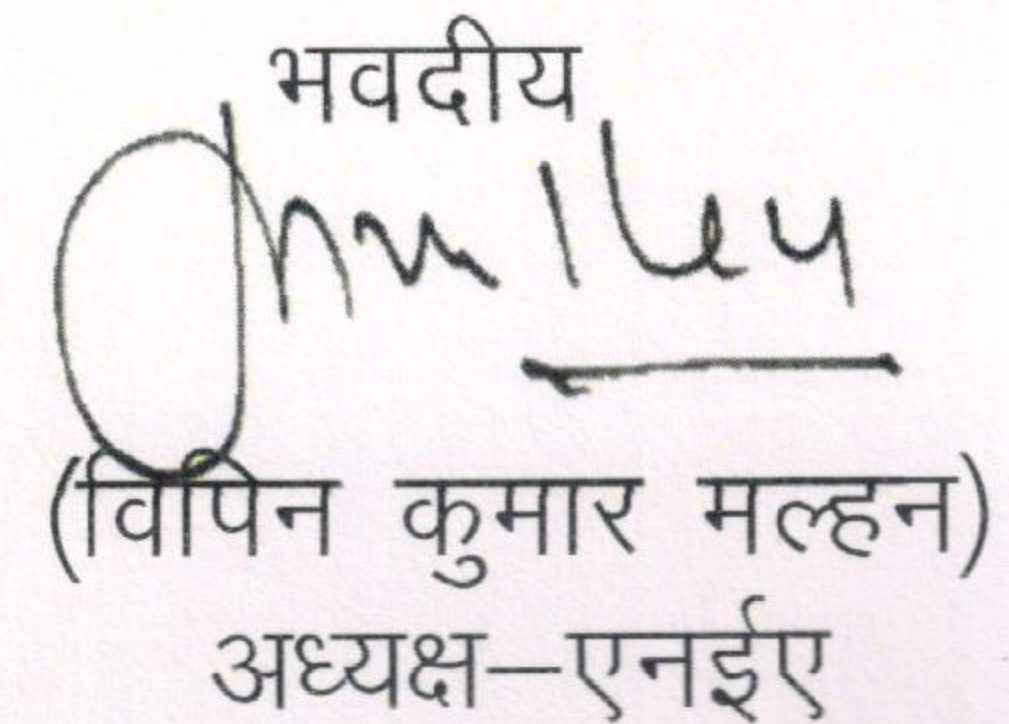 भवदीय
(विपिन कुमार मल्हन)
अध्यक्ष–एनईए